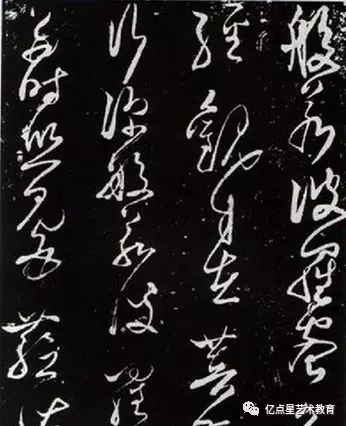 般若波羅蜜多
經觀自在菩
行深般若波羅
多時照見五蘊皆
亿点星艺术教育